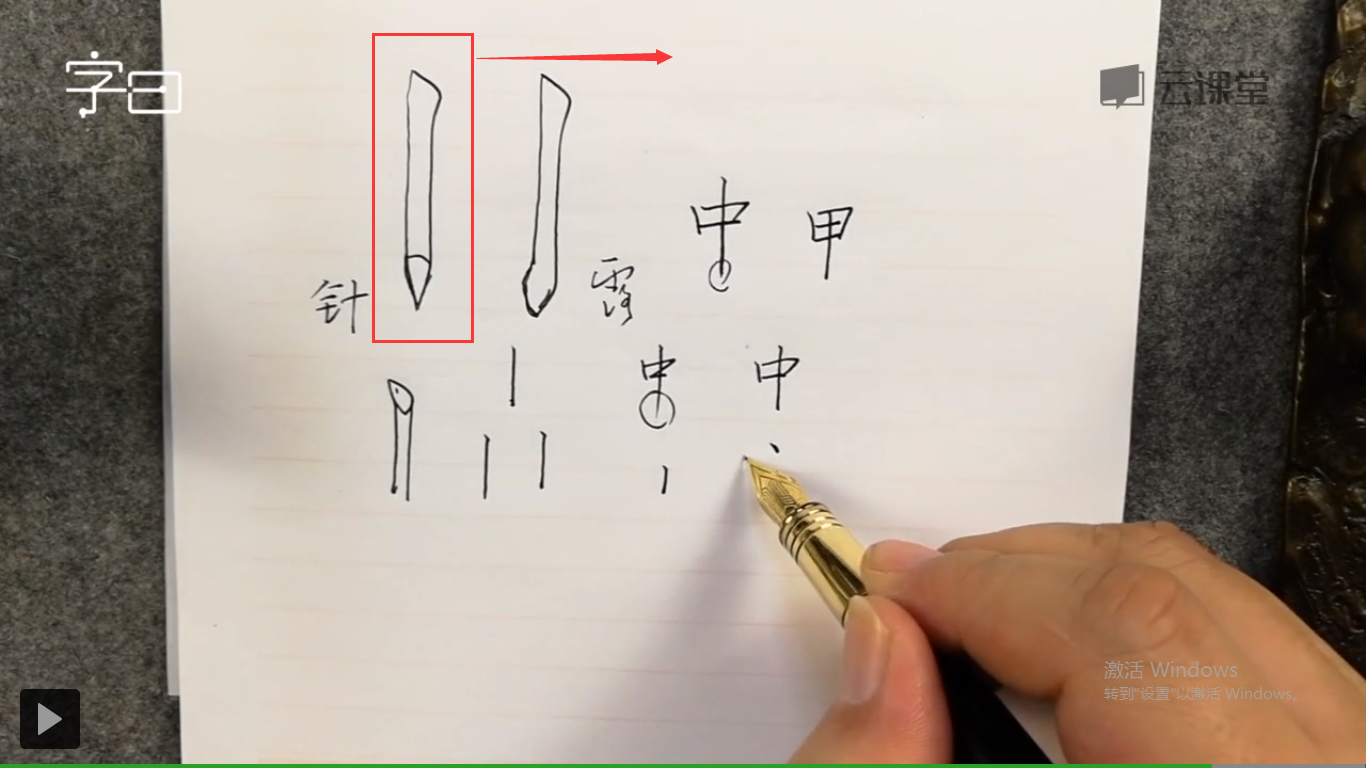 字曰
云课堂
中 甲
针 露
中 中
激活 Windows
转到"设置"以激活 Windows。